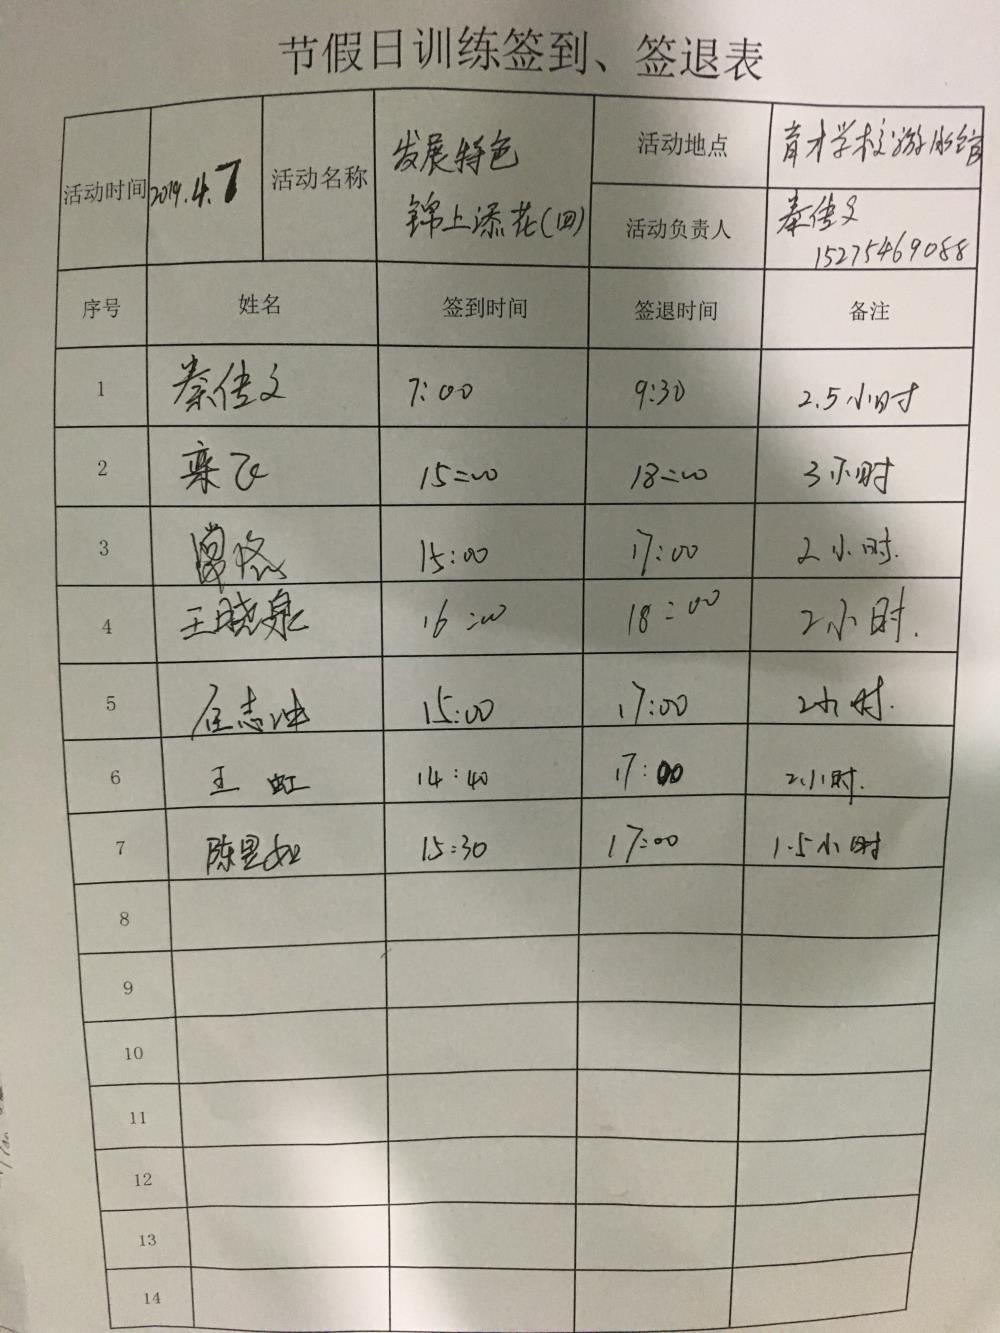 节假日训练签到、签退表
活动时间 2019.4.7 活动名称 发展特色 锦上添花(四) 活动地点 育才学校游泳馆
活动负责人 秦传文 15275469088
序号 姓名 签到时间 签退时间 备注
1 秦传文 7:00 9:30 2.5小时
2 栾飞 15:00 18:00 3小时
3 15:00 17:00 2小时.
4 王晓泉 16:00 18:00 2小时.
5 志冲 15:00 17:00 2小时.
6 王虹 14:40 17:00 2小时.
7 陈昱如 15:30 17:00 1.5小时
8
9
10
11
12
13
14